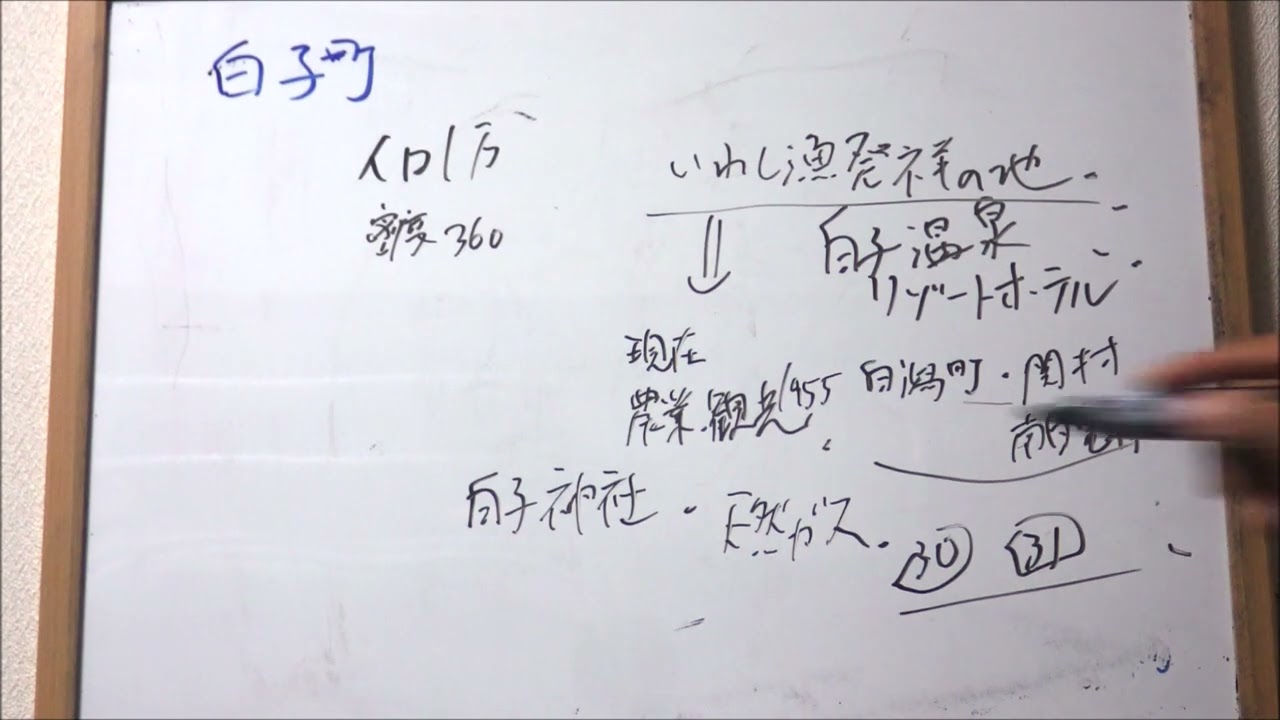 白子町
人口1万
密度360
いわし漁発祥の地.
白子温泉
リゾートホテル
現在
農業.観光
1955 白潟町・関村
白子神社・天然ガス.
30 31